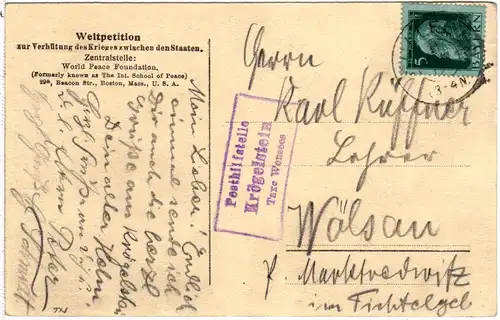 Weltpetition
zur Verhütung des Krieges zwischen den Staaten.
Zentralstelle:
World Peace Foundation.
(Formerly known as The Int. School of Peace)
29a, Beacon Str., Boston, Mass., U. S. A.
Mein Lieber! Endlich
einmal sende ich
Dir auch die herzl.
Grüße aus Krögelstein
Dein alter
Peter
Schmidt
Posthilfstelle
Krögelstein
Taxe Wonsees
5
BAYERN
3-4 N.
Herrn
Karl Küffner
Lehrer
Wölsau
P. Marktredwitz
im Fichtelgeb.